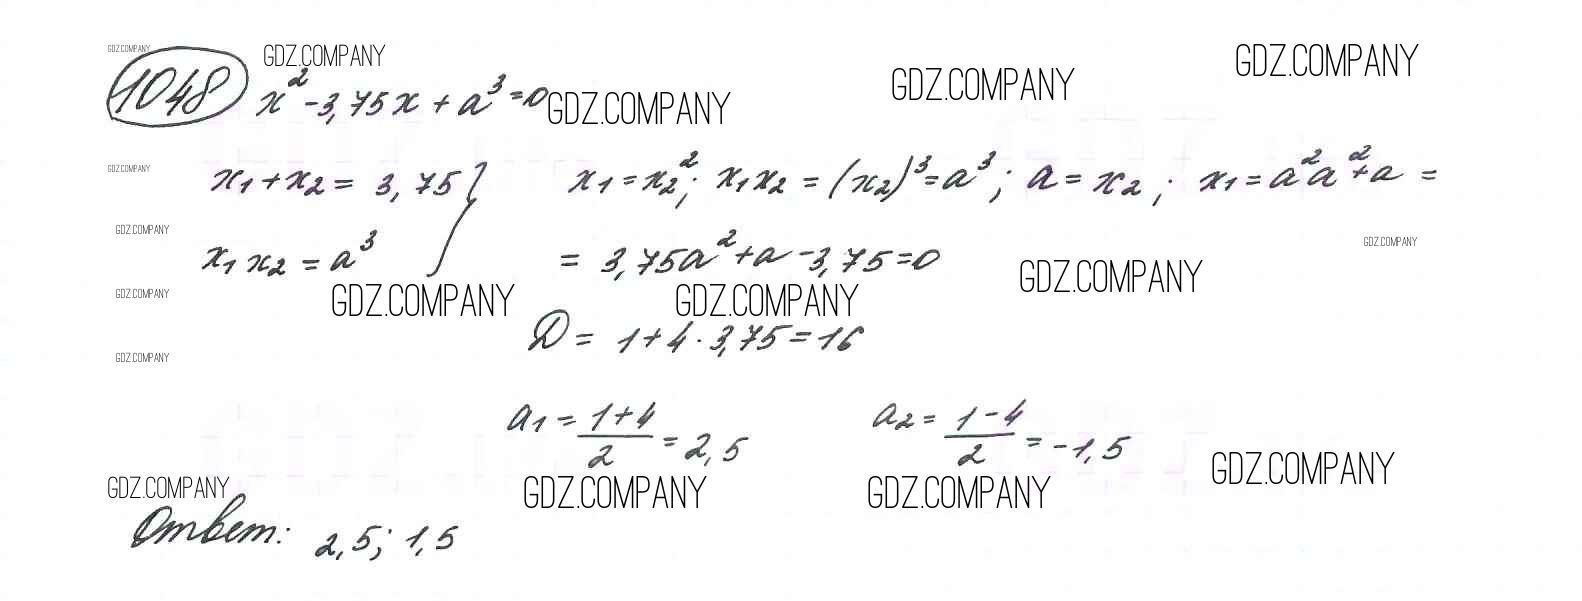 GDZ.COMPANY GDZ.COMPANY GDZ.COMPANY
1048 x² - 3,75x + a³ = 0 GDZ.COMPANY GDZ.COMPANY
GDZ.COMPANY
x₁ + x₂ = 3,75 } x₁ = x₂²; x₁x₂ = (x₂)³ = a³; a = x₂; x₁ = a² a² + a =
GDZ.COMPANY GDZ.COMPANY
x₁x₂ = a³ = 3,75a² + a - 3,75 = 0 GDZ.COMPANY
GDZ.COMPANY GDZ.COMPANY GDZ.COMPANY
D = 1 + 4 · 3,75 = 16
GDZ.COMPANY
a₁ = (1+4)/2 = 2,5 a₂ = (1-4)/2 = -1,5
GDZ.COMPANY GDZ.COMPANY GDZ.COMPANY GDZ.COMPANY
Ответ: 2,5; 1,5